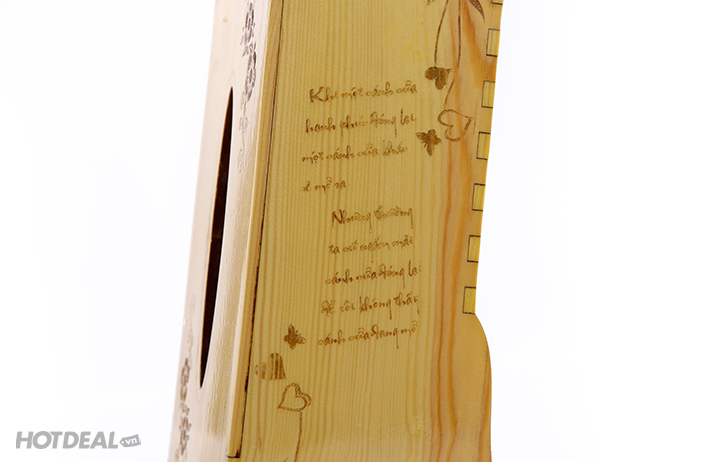 Khi một cánh cửa
hạnh phúc đóng lại
một cánh cửa khác
sẽ mở ra
Nhưng thường
ta cứ ngắm mãi
cánh cửa đóng lại
để rồi không thấy
cánh cửa đang mở
HOTDEAL.vn